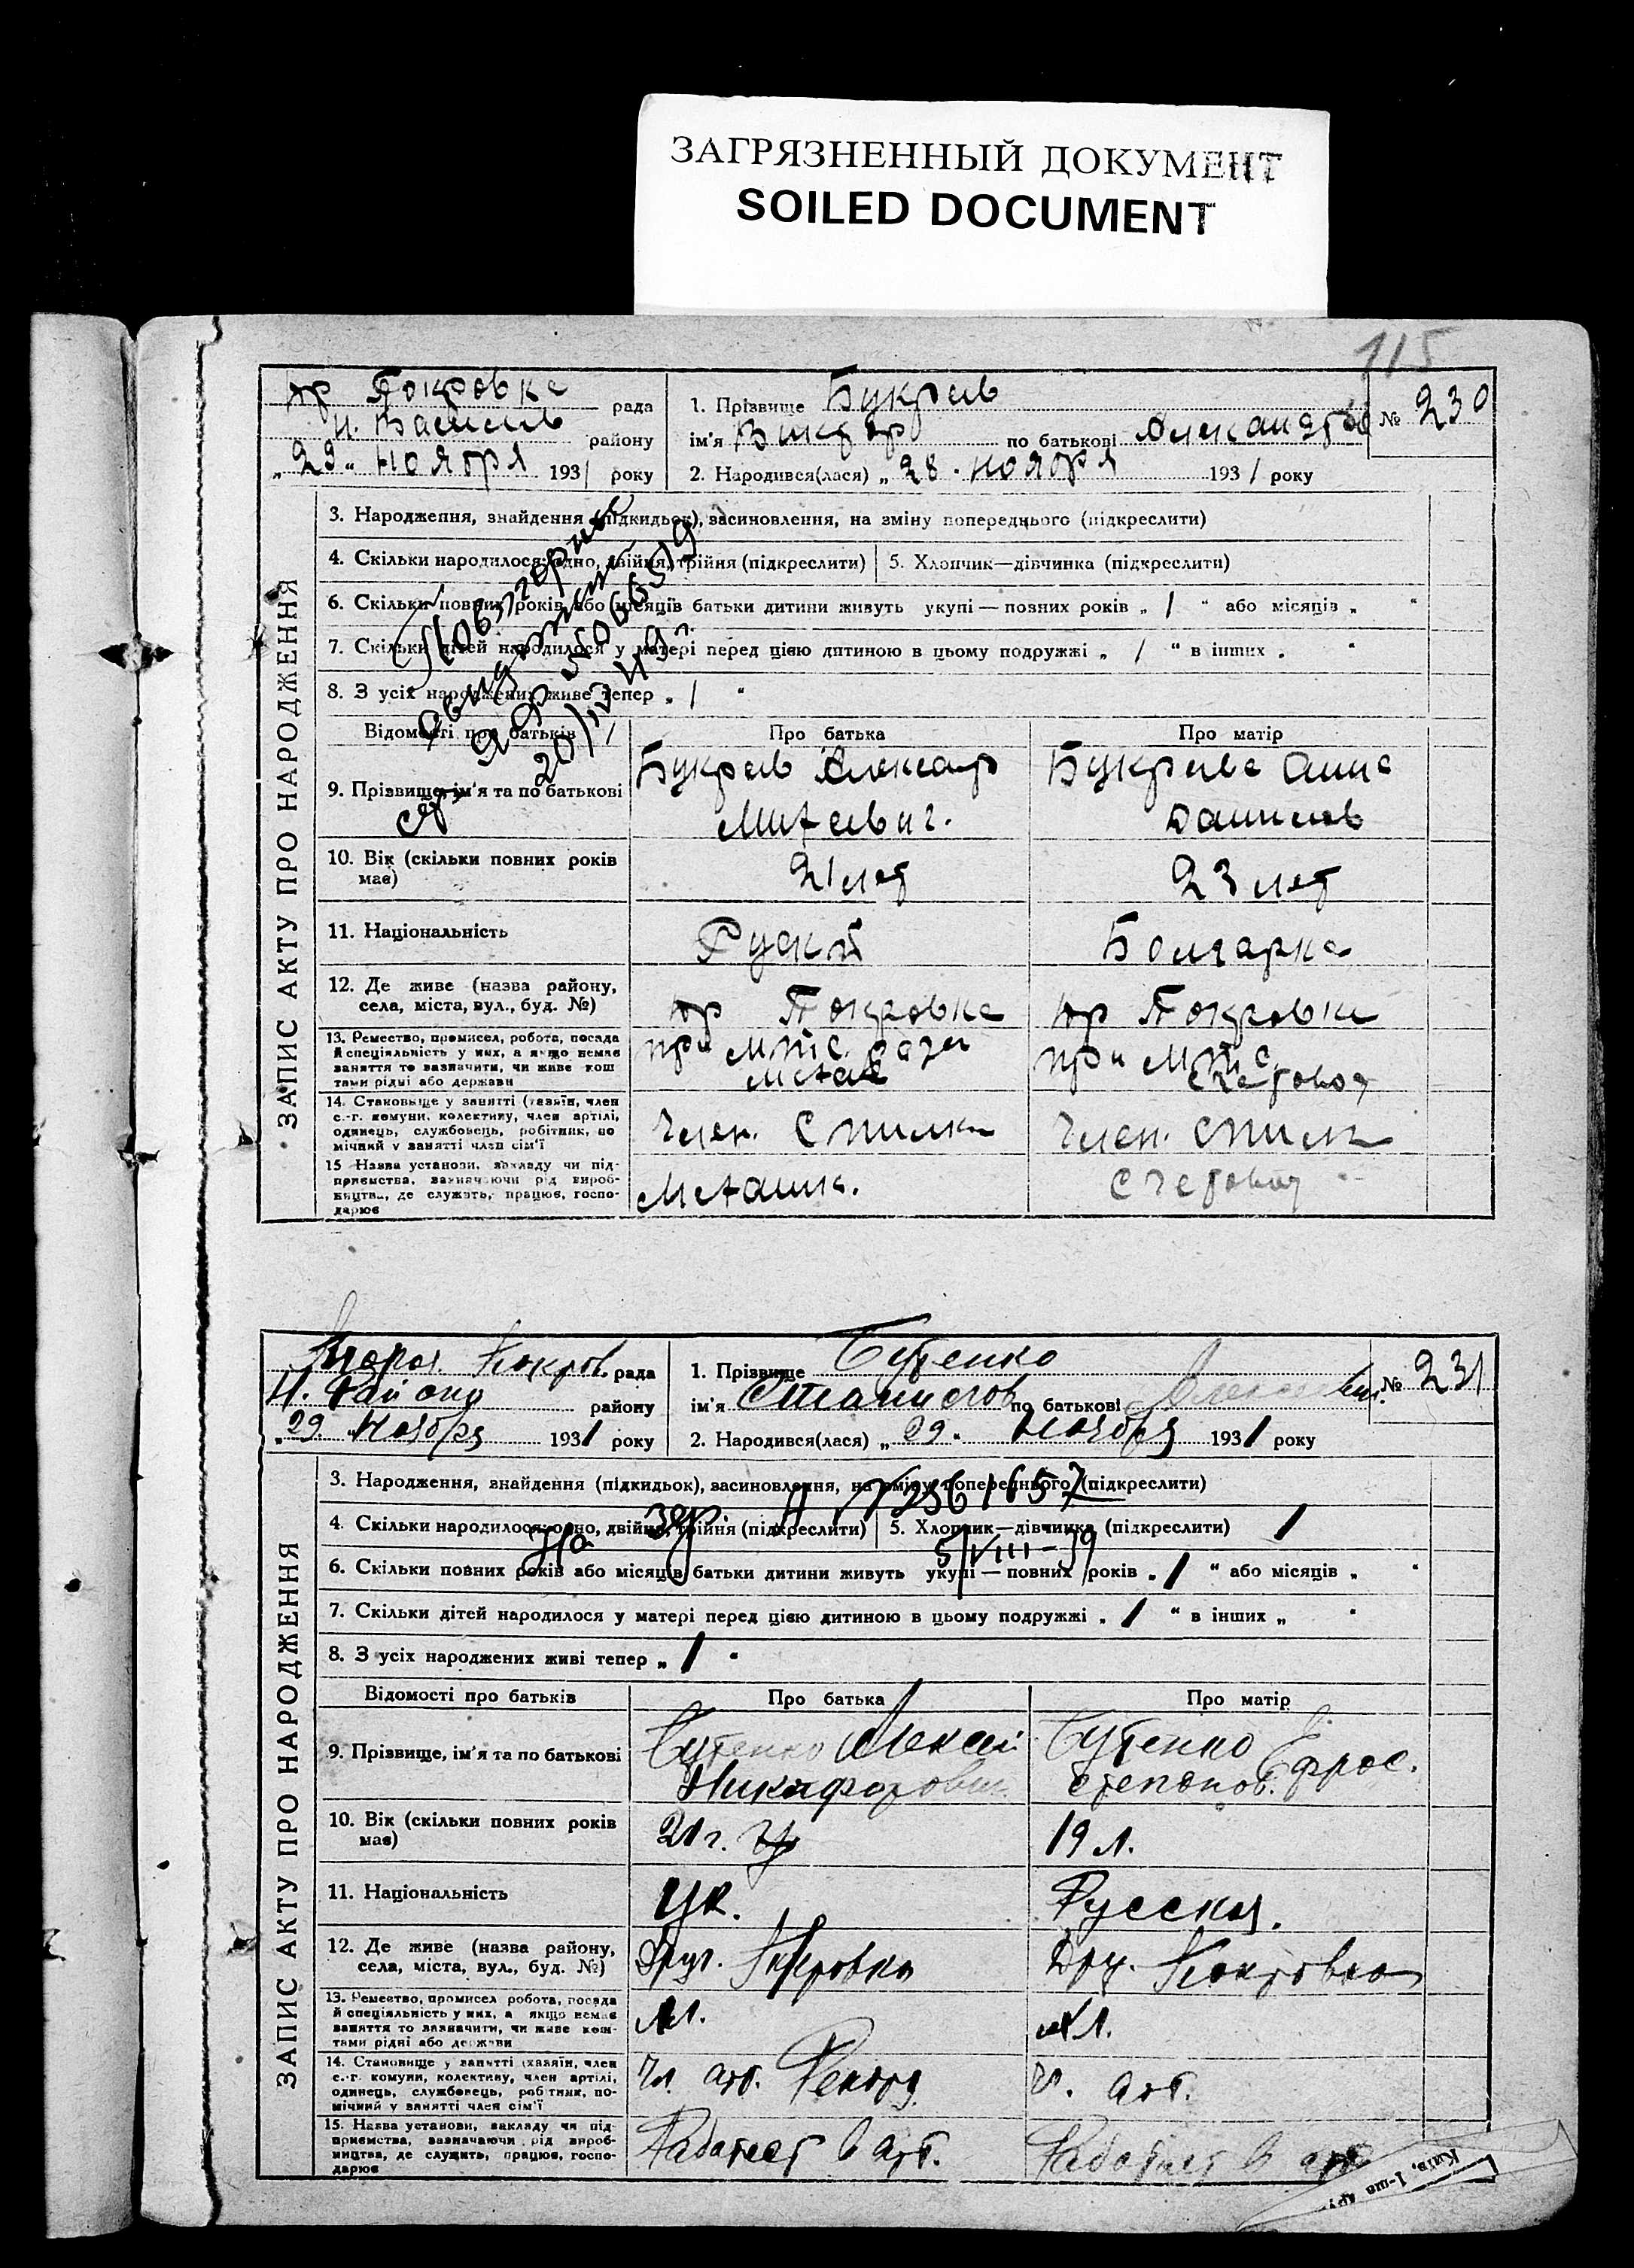 ЗАГРЯЗНЕННЫЙ ДОКУМЕНТ
SOILED DOCUMENT
115
ЗАПИС АКТУ ПРО НАРОДЖЕННЯ
юр Покровка рада
Н. Василев району
„29" ноября 1931 року
1. Прізвище Букреев
№ 230
ім'я Виктор по батькові Александров
2. Народився(лася) „28" ноября 1931 року
3. Народження, знайдення (підкидьок), засиновлення, на зміну попереднього (підкреслити)
4. Скільки народилося: одно, двійня, трійня (підкреслити)
5. Хлопчик—дівчинка (підкреслити)
6. Скільки повних років або місяців батьки дитини живуть укупі — повних років „ / " або місяців „ "
7. Скільки дітей народилося у матері перед цією дитиною в цьому подружжі „ / " в інших „ "
8. З усіх народжених живе тепер „ / "
Повторное
Відомості про батьків
Про батька
Про матір
9. Прізвище, ім'я та по батькові
Букреев Александр
Букреева Анна
Данилов
10. Вік (скільки повних років
має)
21 лет
23 лет
11. Національність
Руский
Болгарка
12. Де живе (назва району,
села, міста, вул., буд. №)
юр Покровка
юр Покровка
13. Ремество, промисел, робота, посада
й спеціяльність у них, а якщо немає
заняття то зазначити, чи живе кош
тами рідні або держави
при МТС
при МТС
Счетовод
14. Становище у занятті (хазяїн, член
с.-г. комуни, колективу, член артілі,
одинець, службовець, робітник, по
мічний у занятті член сім'ї
Член. Спилки
Член. Спилки
15 Назва установи, закладу чи під-
приємства, зазначаючи рід вироб-
ництва, де служить, працює, госпо-
дарює
Счетовод
ЗАПИС АКТУ ПРО НАРОДЖЕННЯ
Покров. рада
Н. району
„29" Ноября 1931 року
1. Прізвище Бутенко
№ 231
ім'я Станислов по батькові Алексеевич
2. Народився(лася) „29" Ноября 1931 року
3. Народження, знайдення (підкидьок), засиновлення, на зміну попереднього (підкреслити)
4. Скільки народилося: одно, двійня, трійня (підкреслити)
5. Хлопчик—дівчинка (підкреслити) /
5/VIII-79
6. Скільки повних років або місяців батьки дитини живуть укупі — повних років „ / " або місяців „ "
7. Скільки дітей народилося у матері перед цією дитиною в цьому подружжі „ / " в інших „ "
8. З усіх народжених живі тепер „ / "
Відомості про батьків
Про батька
Про матір
9. Прізвище, ім'я та по батькові
Бутенко Алексей
Никифорович
Бутенко Ефрос.
Степанов.
10. Вік (скільки повних років
має)
21 г.
19 л.
11. Національність
Ук.
Русская.
12. Де живе (назва району,
села, міста, вул., буд. №)
Друг. Покровка
Друг. Покровка
13. Ремество, промисел робота, посада
й спеціяльність у них, а якщо немає
заняття то зазначити, чи живе кош-
тами рідні або держави
14. Становище у занятті (хазяїн, член
с.-г. комуни, колективу, член артілі,
одинець, службовець, робітник, по-
мічний у занятті член сім'ї
Чл. арт.
Ч. арт.
15. Назва установи, закладу чи під-
приємства, зазначаючи рід вироб-
ництва, де служить, працює, госпо-
дарює
Работает в арт.
Работает в арт.
Київ, 1-ша